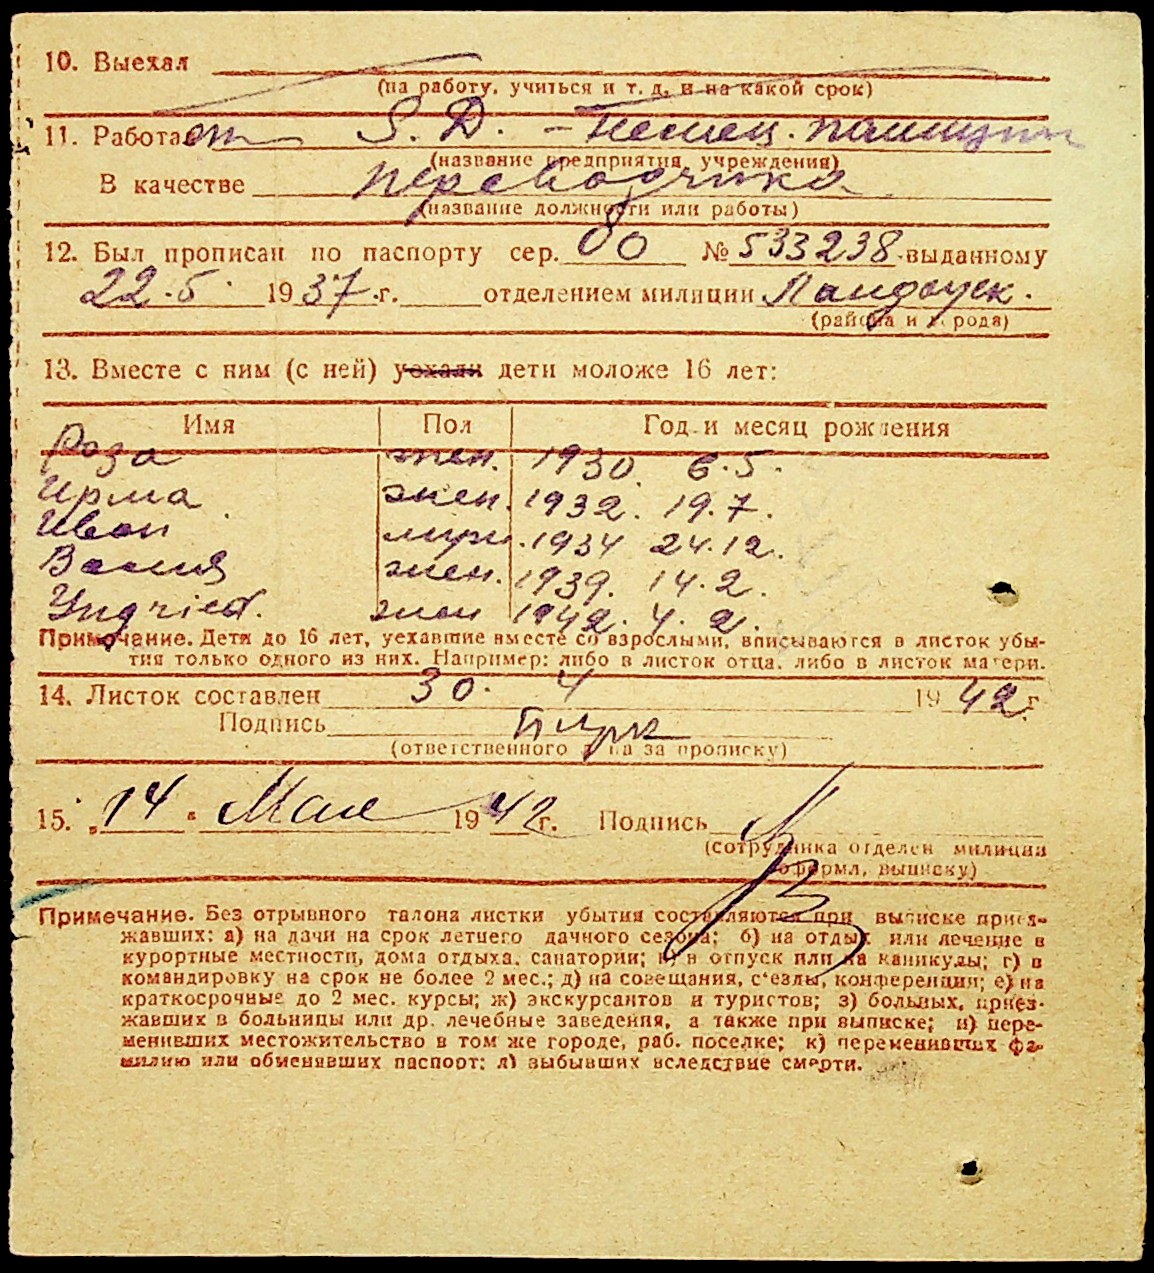 10. Выехал
(на работу, учиться и т. д. и на какой срок)
11. Работает S. D. – Немец. полиции
(название предприятия, учреждения)
В качестве переводчика
(название должности или работы)
12. Был прописан по паспорту сер. 00 № 533238 выданному
22.5. 1937 г. отделением милиции
(района и города)
13. Вместе с ним (с ней) уехали дети моложе 16 лет:
Имя Пол Год и месяц рождения
Роза жен. 1930 6.5.
Ирма жен. 1932. 19.7.
Иван муж. 1934 24.12.
жен. 1939. 14.2.
Yngried. жен 1942. 4. 2.
Примечание. Дети до 16 лет, уехавшие вместе со взрослыми, вписываются в листок убы-
тия только одного из них. Например: либо в листок отца, либо в листок матери.
14. Листок составлен 30. 4 1942 г
Подпись
(ответственного лица за прописку)
15. „14" Мая 1942 г. Подпись
(сотрудника отделен милиции
оформл, выписку)
Примечание. Без отрывного талона листки убытия составляются при выписке приез-
жавших: а) на дачи на срок летнего дачного сезона; б) на отдых или лечение в
курортные местности, дома отдыха, санатории; в) в отпуск или на каникулы; г) в
командировку на срок не более 2 мес.; д) на совещания, с'езды, конференции; е) на
краткосрочные до 2 мес. курсы; ж) экскурсантов и туристов; з) больных, приез-
жавших в больницы или др. лечебные заведения, а также при выписке; и) пере-
менивших местожительство в том же городе, раб. поселке; к) переменивших фа-
милию или обменявших паспорт; л) выбывших вследствие смерти.